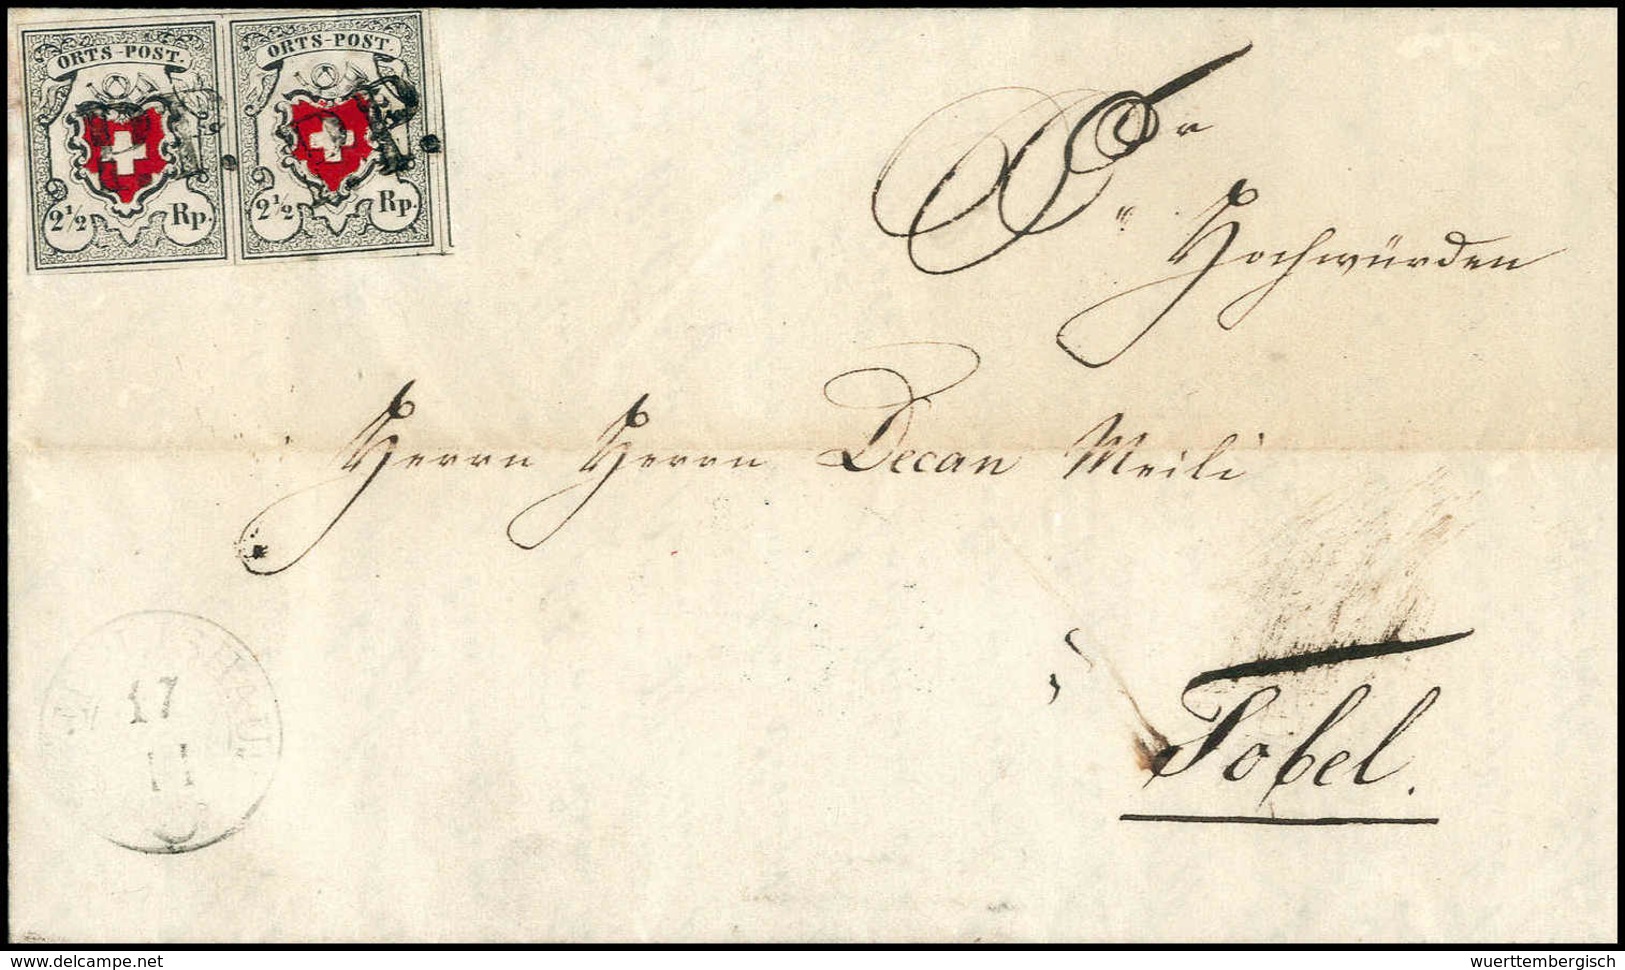 ORTS-POST.
ORTS-POST.
P.P.
P.P.
2½ Rp.
2½ Rp.
Sr
Hochwürden
Herrn Herrn Decan Meili
Tobel.
17
11
www.delcampe.net
wuerttembergisch